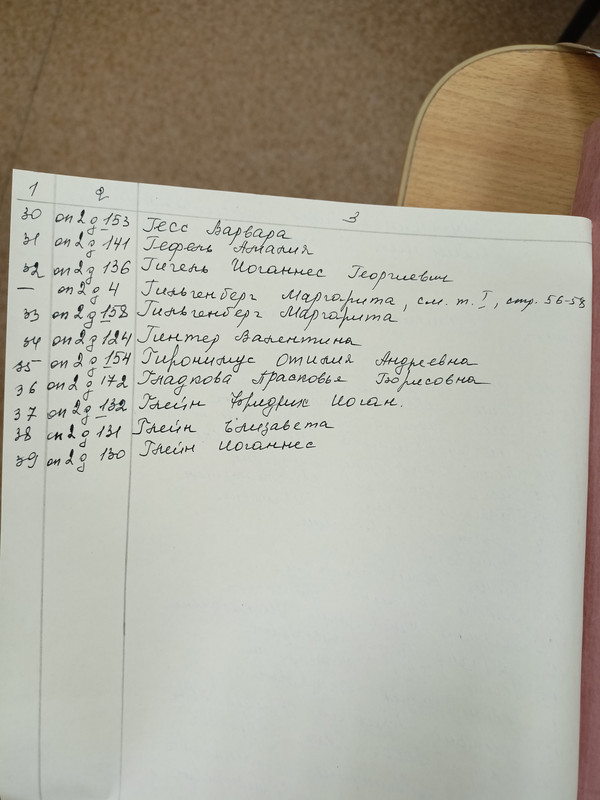 1 2 3
30 оп 2 д 153 Гесс Варвара
31 оп 2 д 141 Гефель Амалия
32 оп 2 д 136 Гигель Иоганнес Георгиевич
— оп 2 д 4 Гильгенберг Маргарита, см. т. I, стр. 56-58
33 оп 2 д 158 Гильгенберг Маргарита
34 оп 2 д 124 Гинтер Валентина
35 оп 2 д 154 Гиронимус Отилия Андреевна
36 оп 2 д 172 Гладкова Прасковья Борисовна
37 оп 2 д 132 Глейн Фридрих Иоган.
38 оп 2 д 131 Глейн Елизавета
39 оп 2 д 130 Глейн Иоганнес